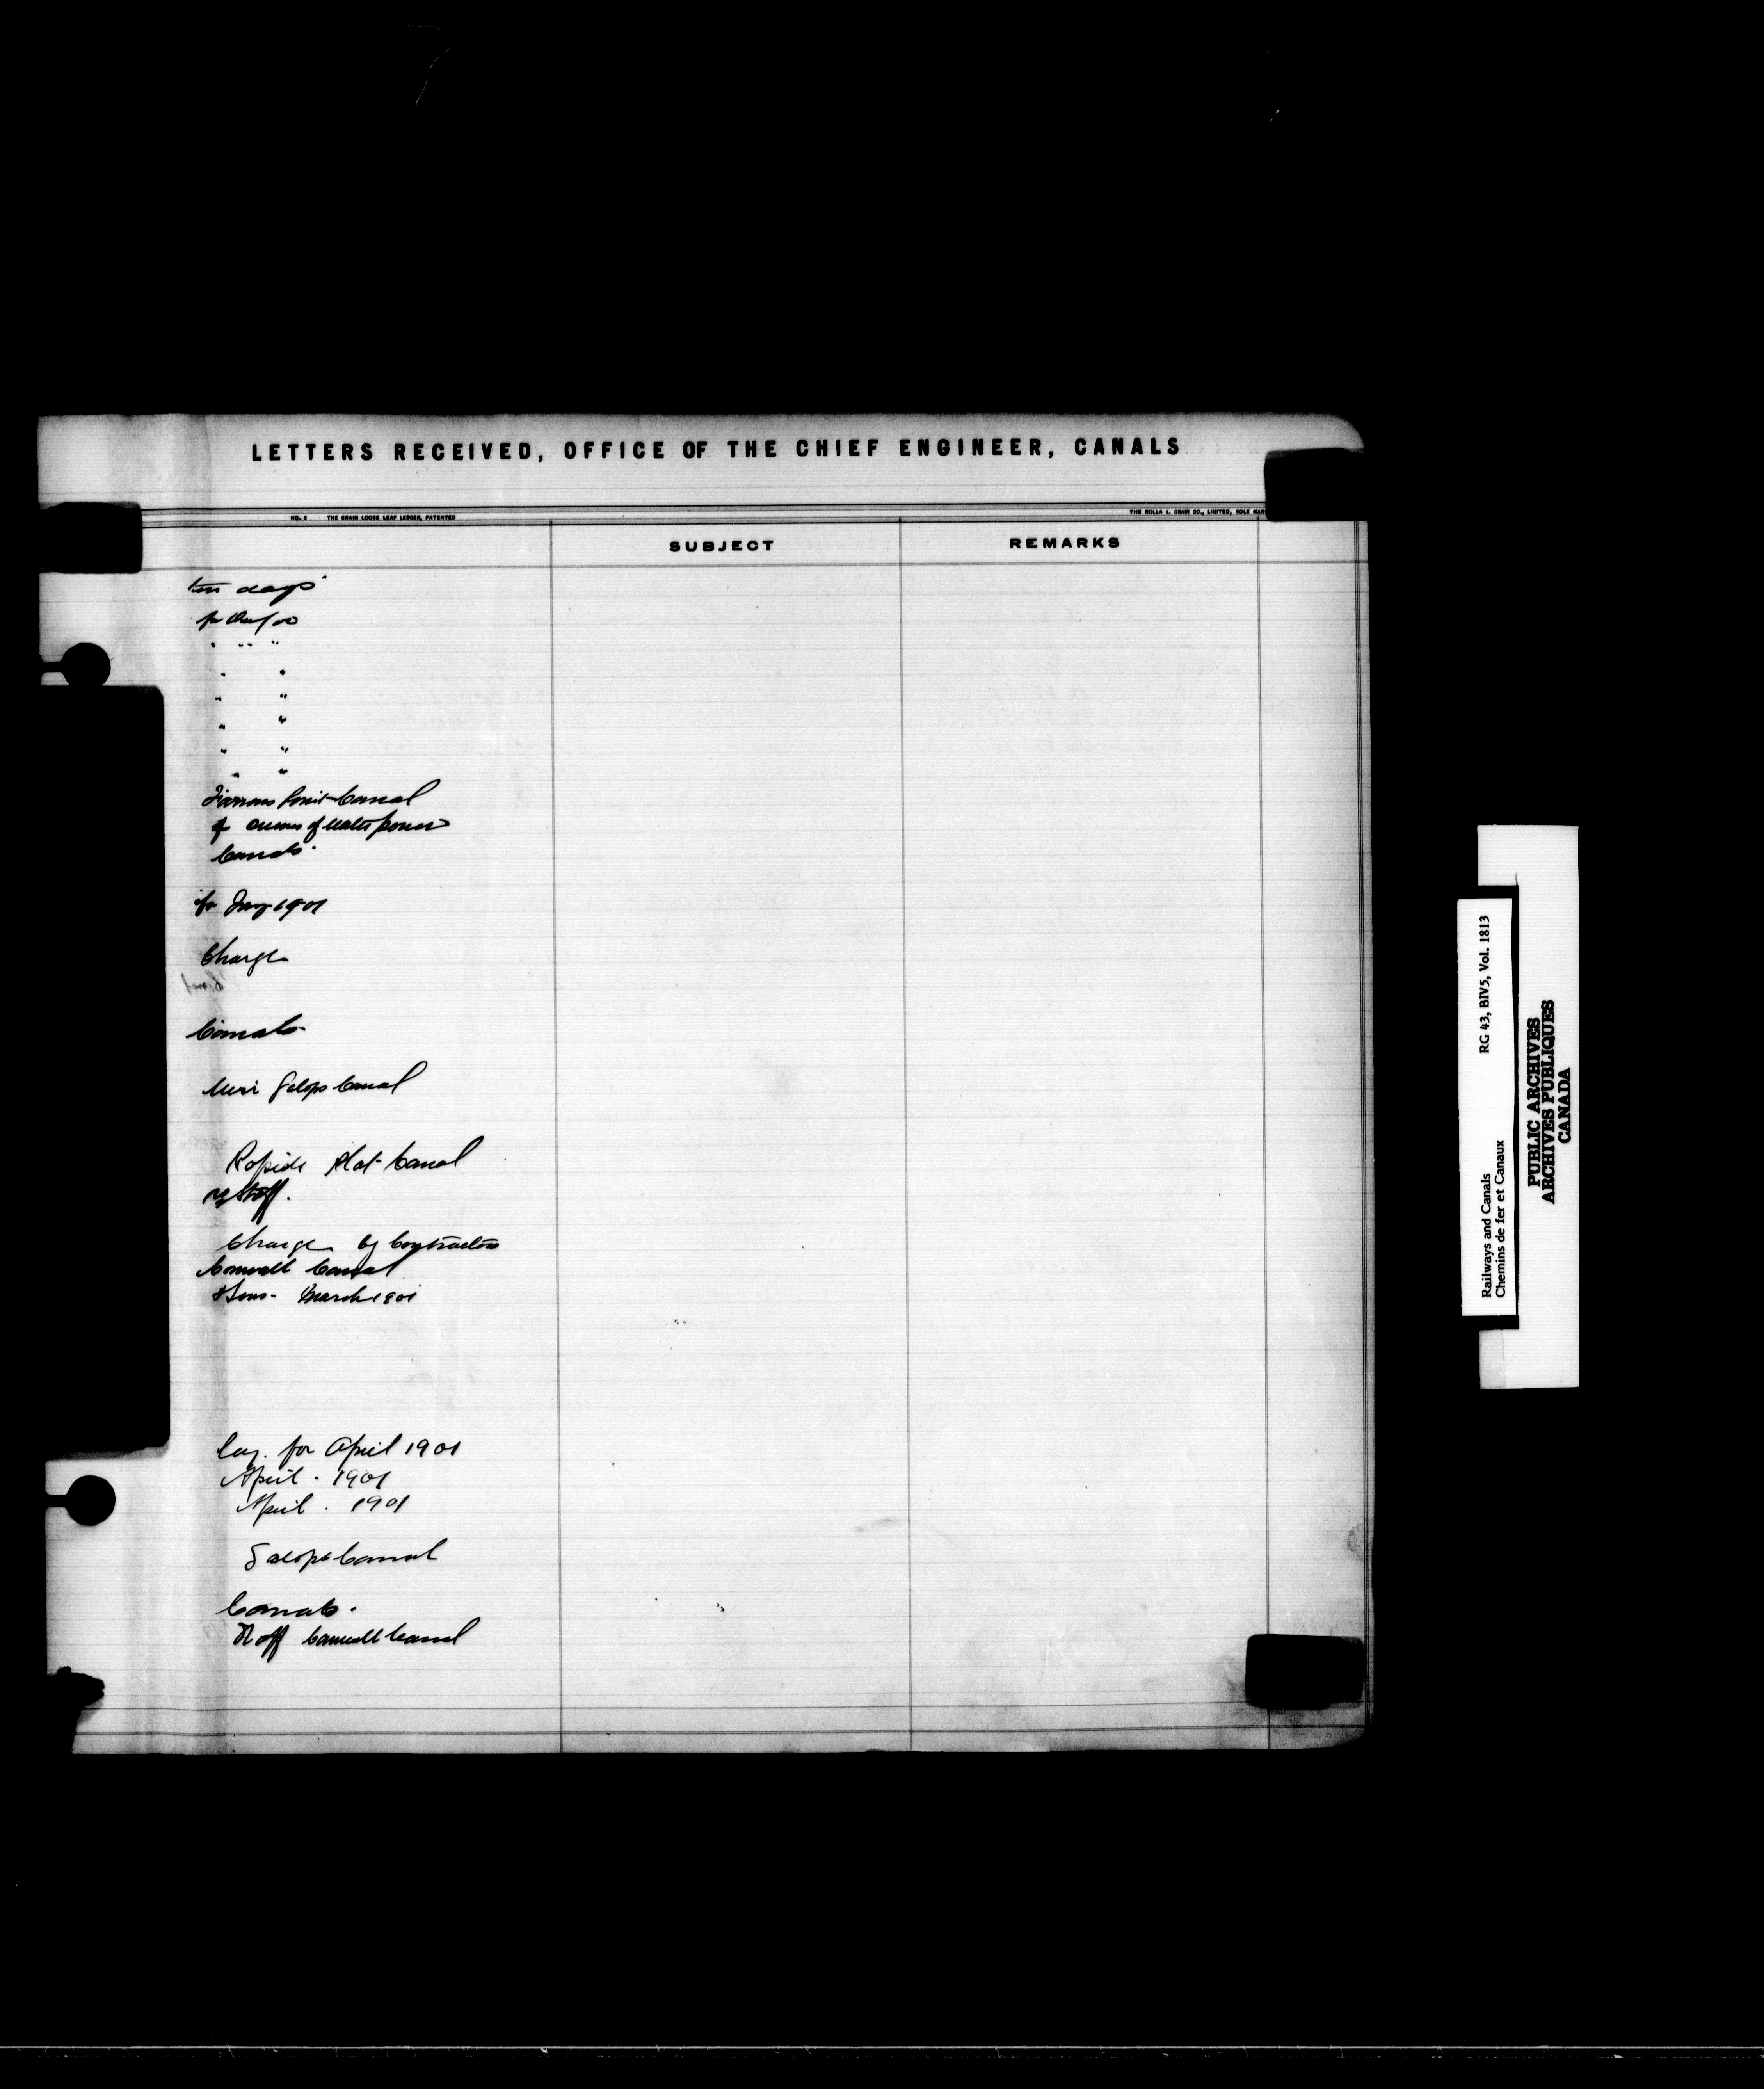 LETTERS RECEIVED, OFFICE OF THE CHIEF ENGINEER, CANALS
NO. 2 THE CRAIN LOOSE LEAF LEDGER, PATENTED
THE ROLLA L. CRAIN CO., LIMITED, SOLE
SUBJECT
REMARKS
ten days
for
" " "
" "
" "
" "
" "
" "
Farrans Point Canal
of water power
Canals
for Jany 1901
Charge
Canals
Galops Canal
Rapide Plat Canal
Staff.
Charge by Contractors
Cornwall Canal
March 1901
for April 1901
April . 1901
April . 1901
Galops Canal
Canals.
Cornwall Canal
Railways and Canals RG 43, BIV5, Vol. 1813
Chemins de fer et Canaux
PUBLIC ARCHIVES
ARCHIVES PUBLIQUES
CANADA